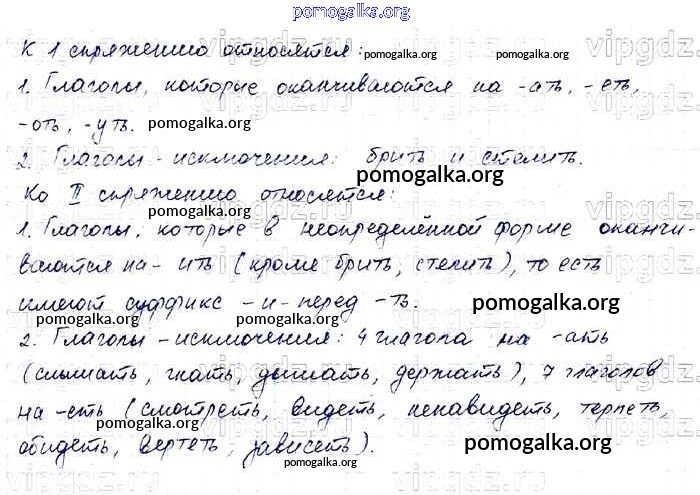 pomogalka.org
К 1 спряжению относятся: pomogalka.org pomogalka.org
1. Глаголы, которые оканчиваются на -ать, -еть,
-оть, -уть. pomogalka.org
2. Глаголы - исключения: брить и стелить.
pomogalka.org
Ко II спряжению относятся:
pomogalka.org pomogalka.org
1. Глаголы, которые в неопределённой форме оканчи-
ваются на - ить (кроме брить, стелить), то есть
имеют суффикс - и - перед -ть. pomogalka.org
pomogalka.org pomogalka.org
2. Глаголы - исключения: 4 глагола на -ать
(слышать, гнать, дышать, держать), 7 глаголов
на -еть (смотреть, видеть, ненавидеть, терпеть,
обидеть, вертеть, зависеть). pomogalka.org
pomogalka.org
vipgdz.ru